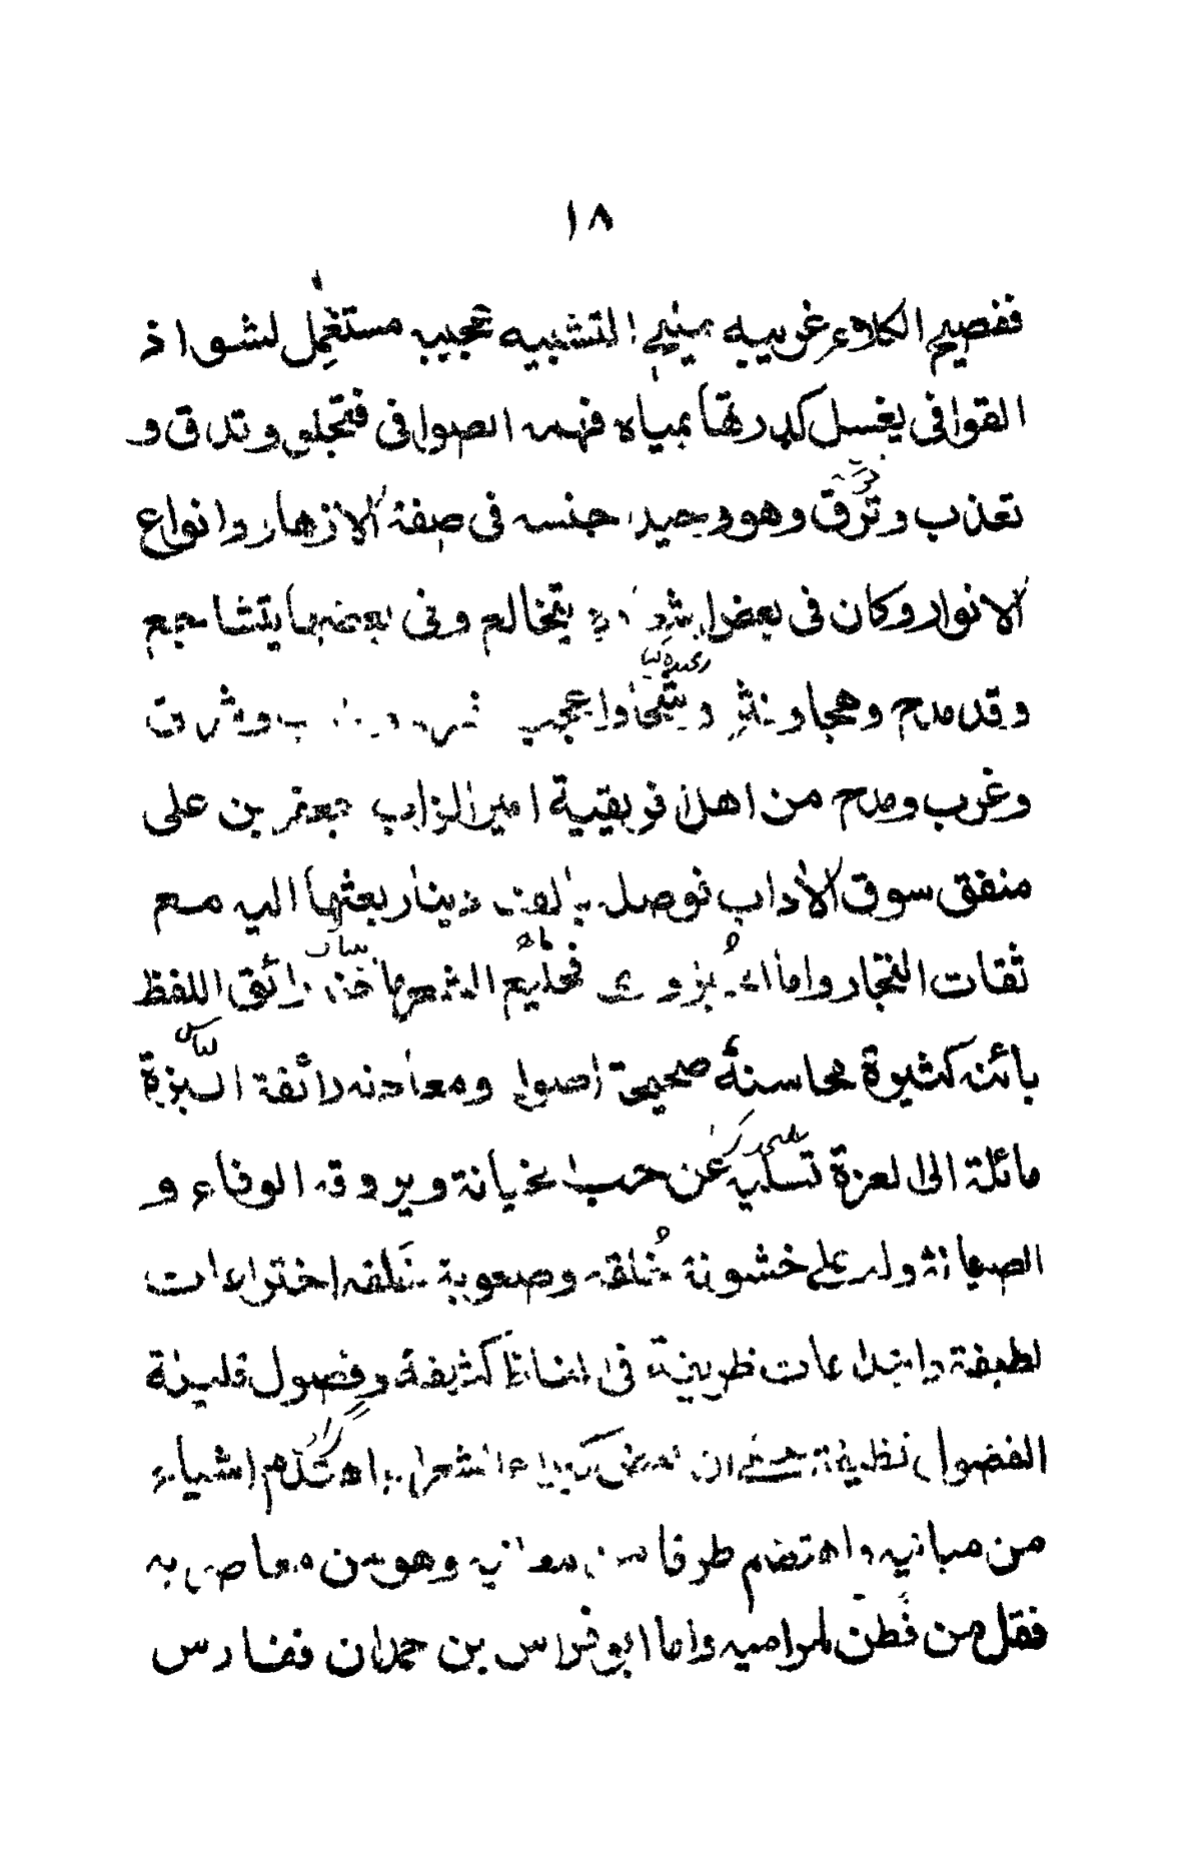 ١٨
ففصيح الكلام غريبه مليح التشبيه عجيبه مستعمل لشواذ
القوافى يغسل كدرتها بمياه فهمه الصوافى فتجلى وتدق و
تعذب وترق وهو وحيد جنسه فى صفة الازهار وانواع
الانوار وكان فى بعض يتخالع وفى بعضها يتشاجع
وقد مدح وهجا ونثر وشرق
وغرب ومدح من اهل افريقية امير الزاب جعفر بن على
منفق سوق الاداب فوصله بالف دينار بعثها اليه مع
ثقات التجار واما فخليع الشعر ماجنه رائق اللفظ
بائنه كثيرة محاسنه صحيحة اصوله ومعادنه رائقة البزة
مائلة الى العزة تسليه عن حب الخيانة ويروقه الوفاء و
الصيانة وله على خشونة خلقه وصعوبة خلقه اختراعات
لطيفة وابتداعات ظريفة فى الفاظ كثيفة وفصول قليلة
الفضول نظيفة بعض كبراء الشعراء اهتدم اشياء
من مبانيه واهتضم طرفا من معانيه وهو من معاصريه
فقل من فطن لمراميه واما ابو فراس بن حمدان ففارس